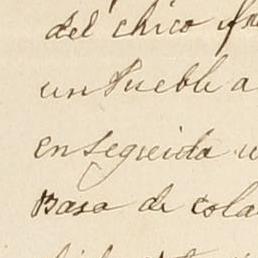 del chico
un Pueblo a
enseguida
Basa de cola